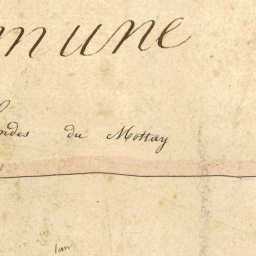 mmune
ndes du Mottay
lan